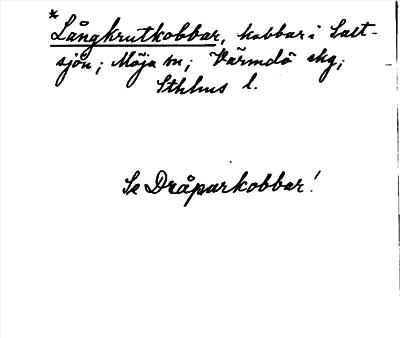 * Långkrutkobbar, kobbar i Salt-
sjön; Möja sn; Värmdö skg;
Sthlms l.
Se Dråparkobbar!